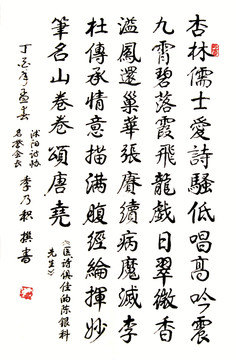 杏林儒士愛詩騷低唱高吟震
九霄碧落霞飛龍戲日翠微香
溢鳳還巢華張賡續病魔滅李
杜傳承情意描满腹經綸揮妙
筆名山卷卷頌唐堯
《医诗俱佳的陈银科
先生》
丁酉年孟春
沭阳诗协
名誉会长
李乃积 撰書